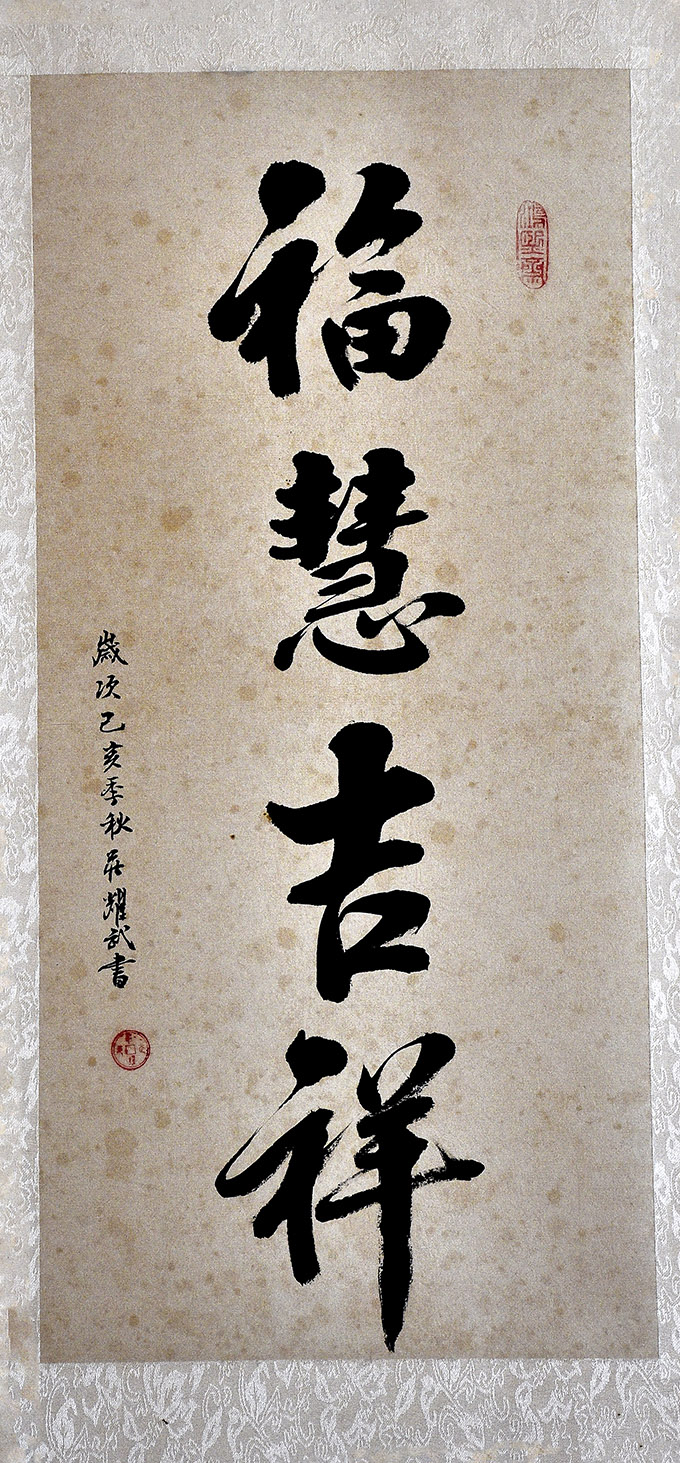 福慧吉祥
歲次己亥季秋莊耀武書